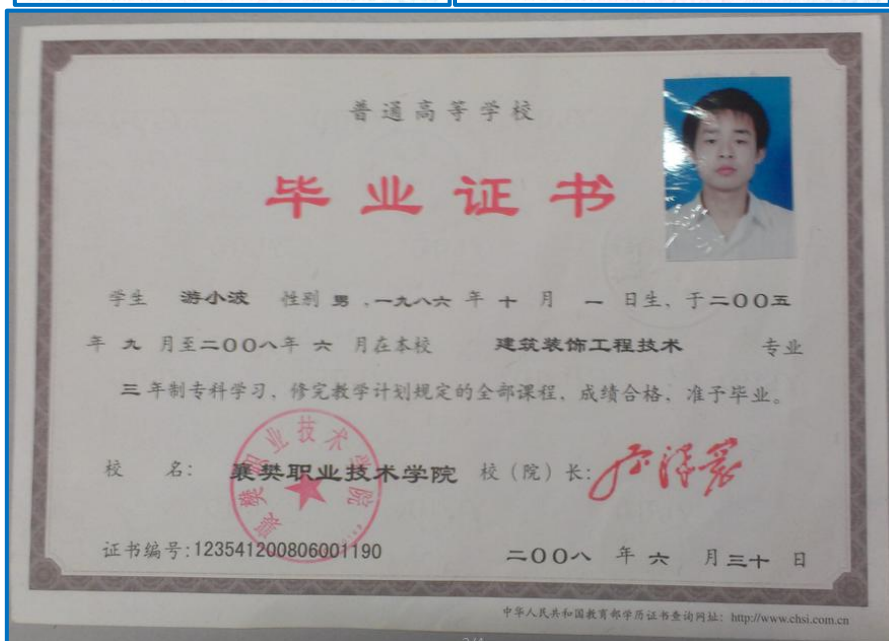 普通高等学校
毕业证书
学生 游小波 性别 男 ,一九八六 年 十 月 一 日生, 于二〇〇五
年 九 月至二〇〇八年 六 月在本校 建筑装饰工程技术 专业
三 年制专科学习, 修完教学计划规定的全部课程, 成绩合格, 准予毕业。
校 名: 襄樊职业技术学院 校(院)长:
襄樊职业技术学院
证书编号:123541200806001190 二〇〇八 年 六 月三十 日
中华人民共和国教育部学历证书查询网址: http://www.chsi.com.cn